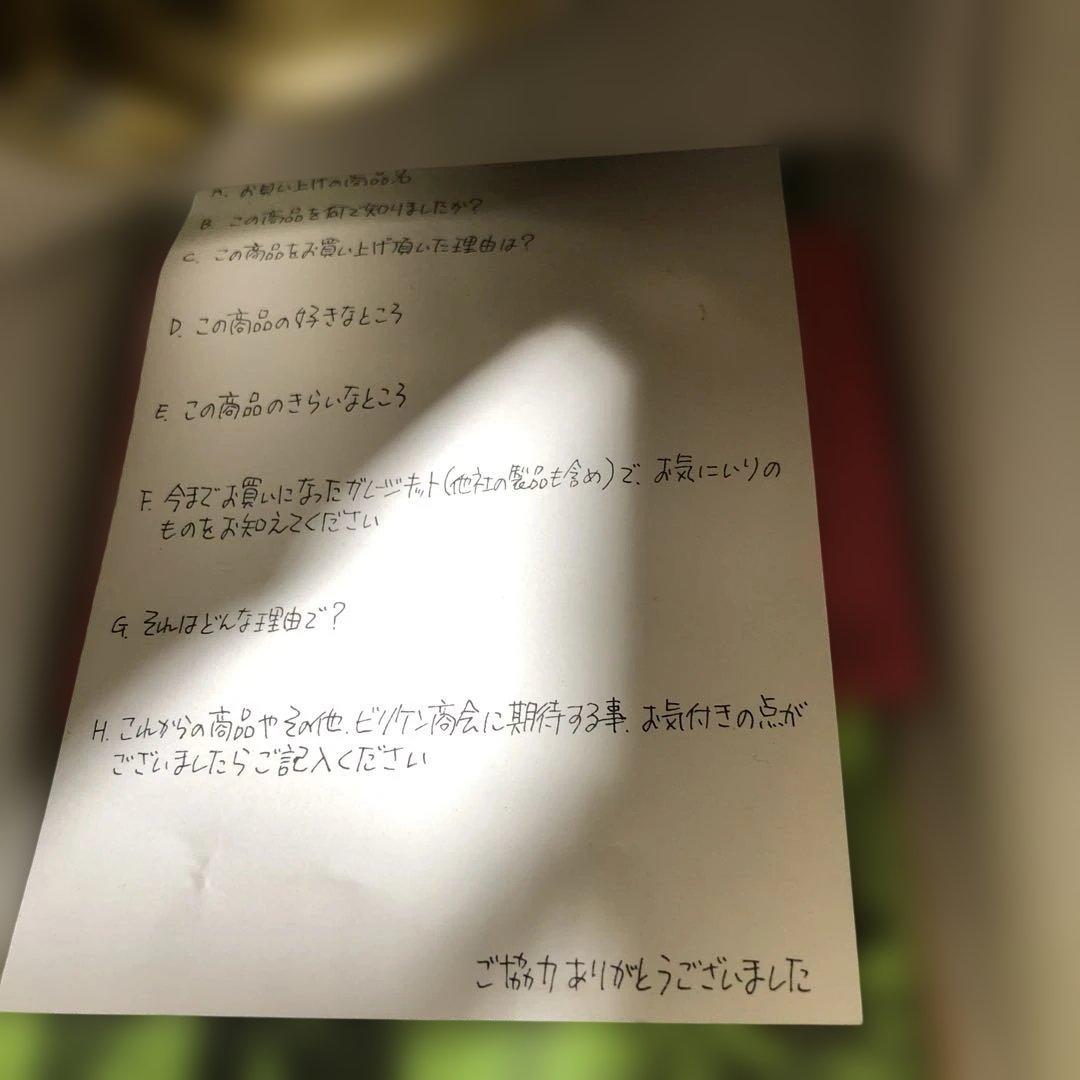 A. お買い上げの商品名
B. この商品を何で知りましたか?
C. この商品をお買い上げ頂いた理由は?
D. この商品の好きなところ
E. この商品のきらいなところ
F. 今までお買いになったガレージキット(他社の製品も含め)で、お気にいりの
ものをお知えてください
G. それはどんな理由で?
H. これからの商品やその他、ビリケン商会に期待する事、お気付きの点が
ございましたらご記入ください
ご協力ありがとうございました